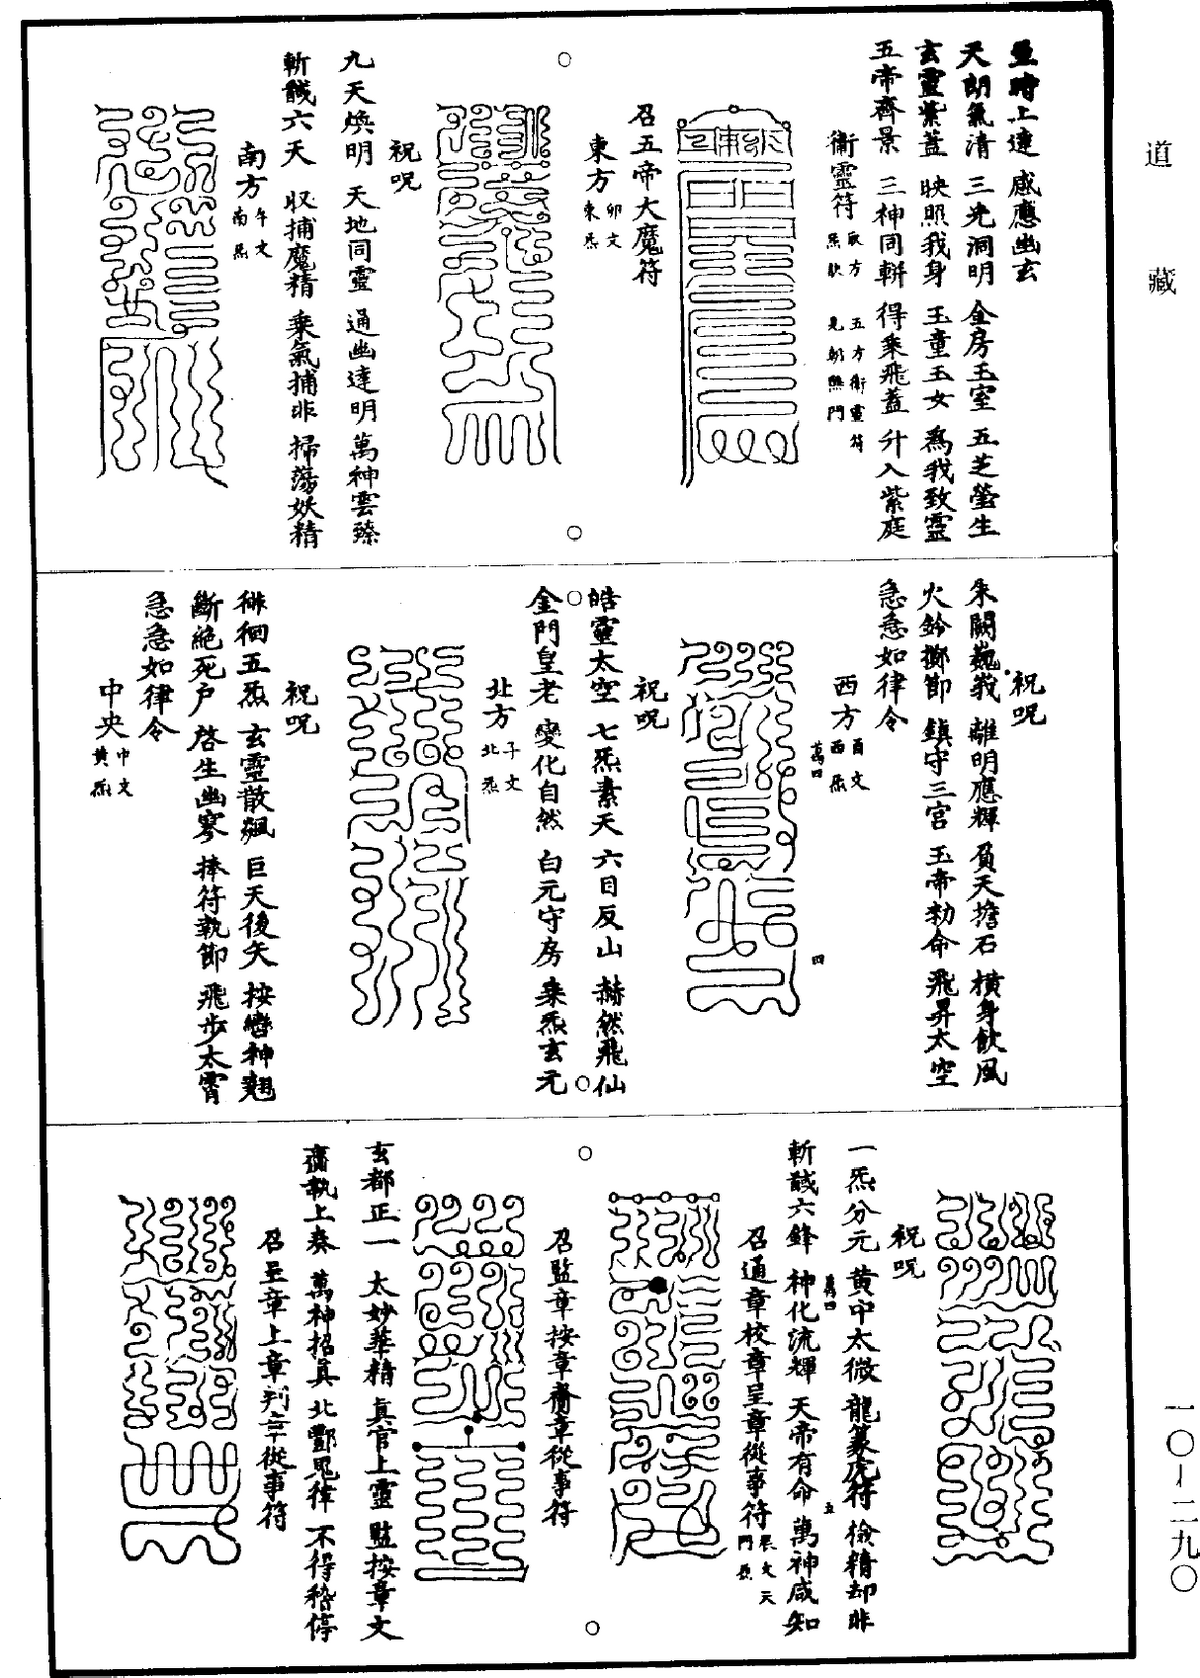 道藏
上達 感應幽玄
天朗氣清 三光洞明 金房玉室 五芝瑩生
玄靈紫蓋 映照我身 玉童玉女 爲我致靈
五帝齊景 三神同軿 得乘飛蓋 升入紫庭
衛靈符 取方 五方衛靈符
召五帝大魔符
東方 卯文 東炁
祝呪
九天煥明 天地同靈 通幽達明 萬神雲臻
斬馘六天 収捕魔精 乘氣捕非 掃蕩妖精
南方 午文 南炁
祝呪
朱闕巍峩 離明應輝 負天擔石 橫身飲風
火鈴擲節 鎮守三宮 玉帝勑命 飛昇太空
急急如律令
西方 酉文 西炁
萬四
四
祝呪
皓靈太空 七炁素天 六目反山 赫然飛仙
金門皇老 變化自然 白元守房 乘炁玄元
北方 子文 北炁
祝呪
徘徊五炁 玄靈散飆 巨天後矢 按轡神翹
斷絶死户 啓生幽寥 捧符執節 飛步太霄
急急如律令
中央 中文 黃炁
祝呪
一炁分元 黃中太微 龍篆虎符 檢精却非
萬四
五
斬馘六鋒 神化流輝 天帝有命 萬神咸知
召通章校章呈章從事符 文天門
召監章按章齎章從事符
玄都正一 太妙華精 真官上靈 監按章文
齎執上奏 萬神招真 北酆鬼律 不得稽停
召呈章上章判章從事符
一〇-二九〇